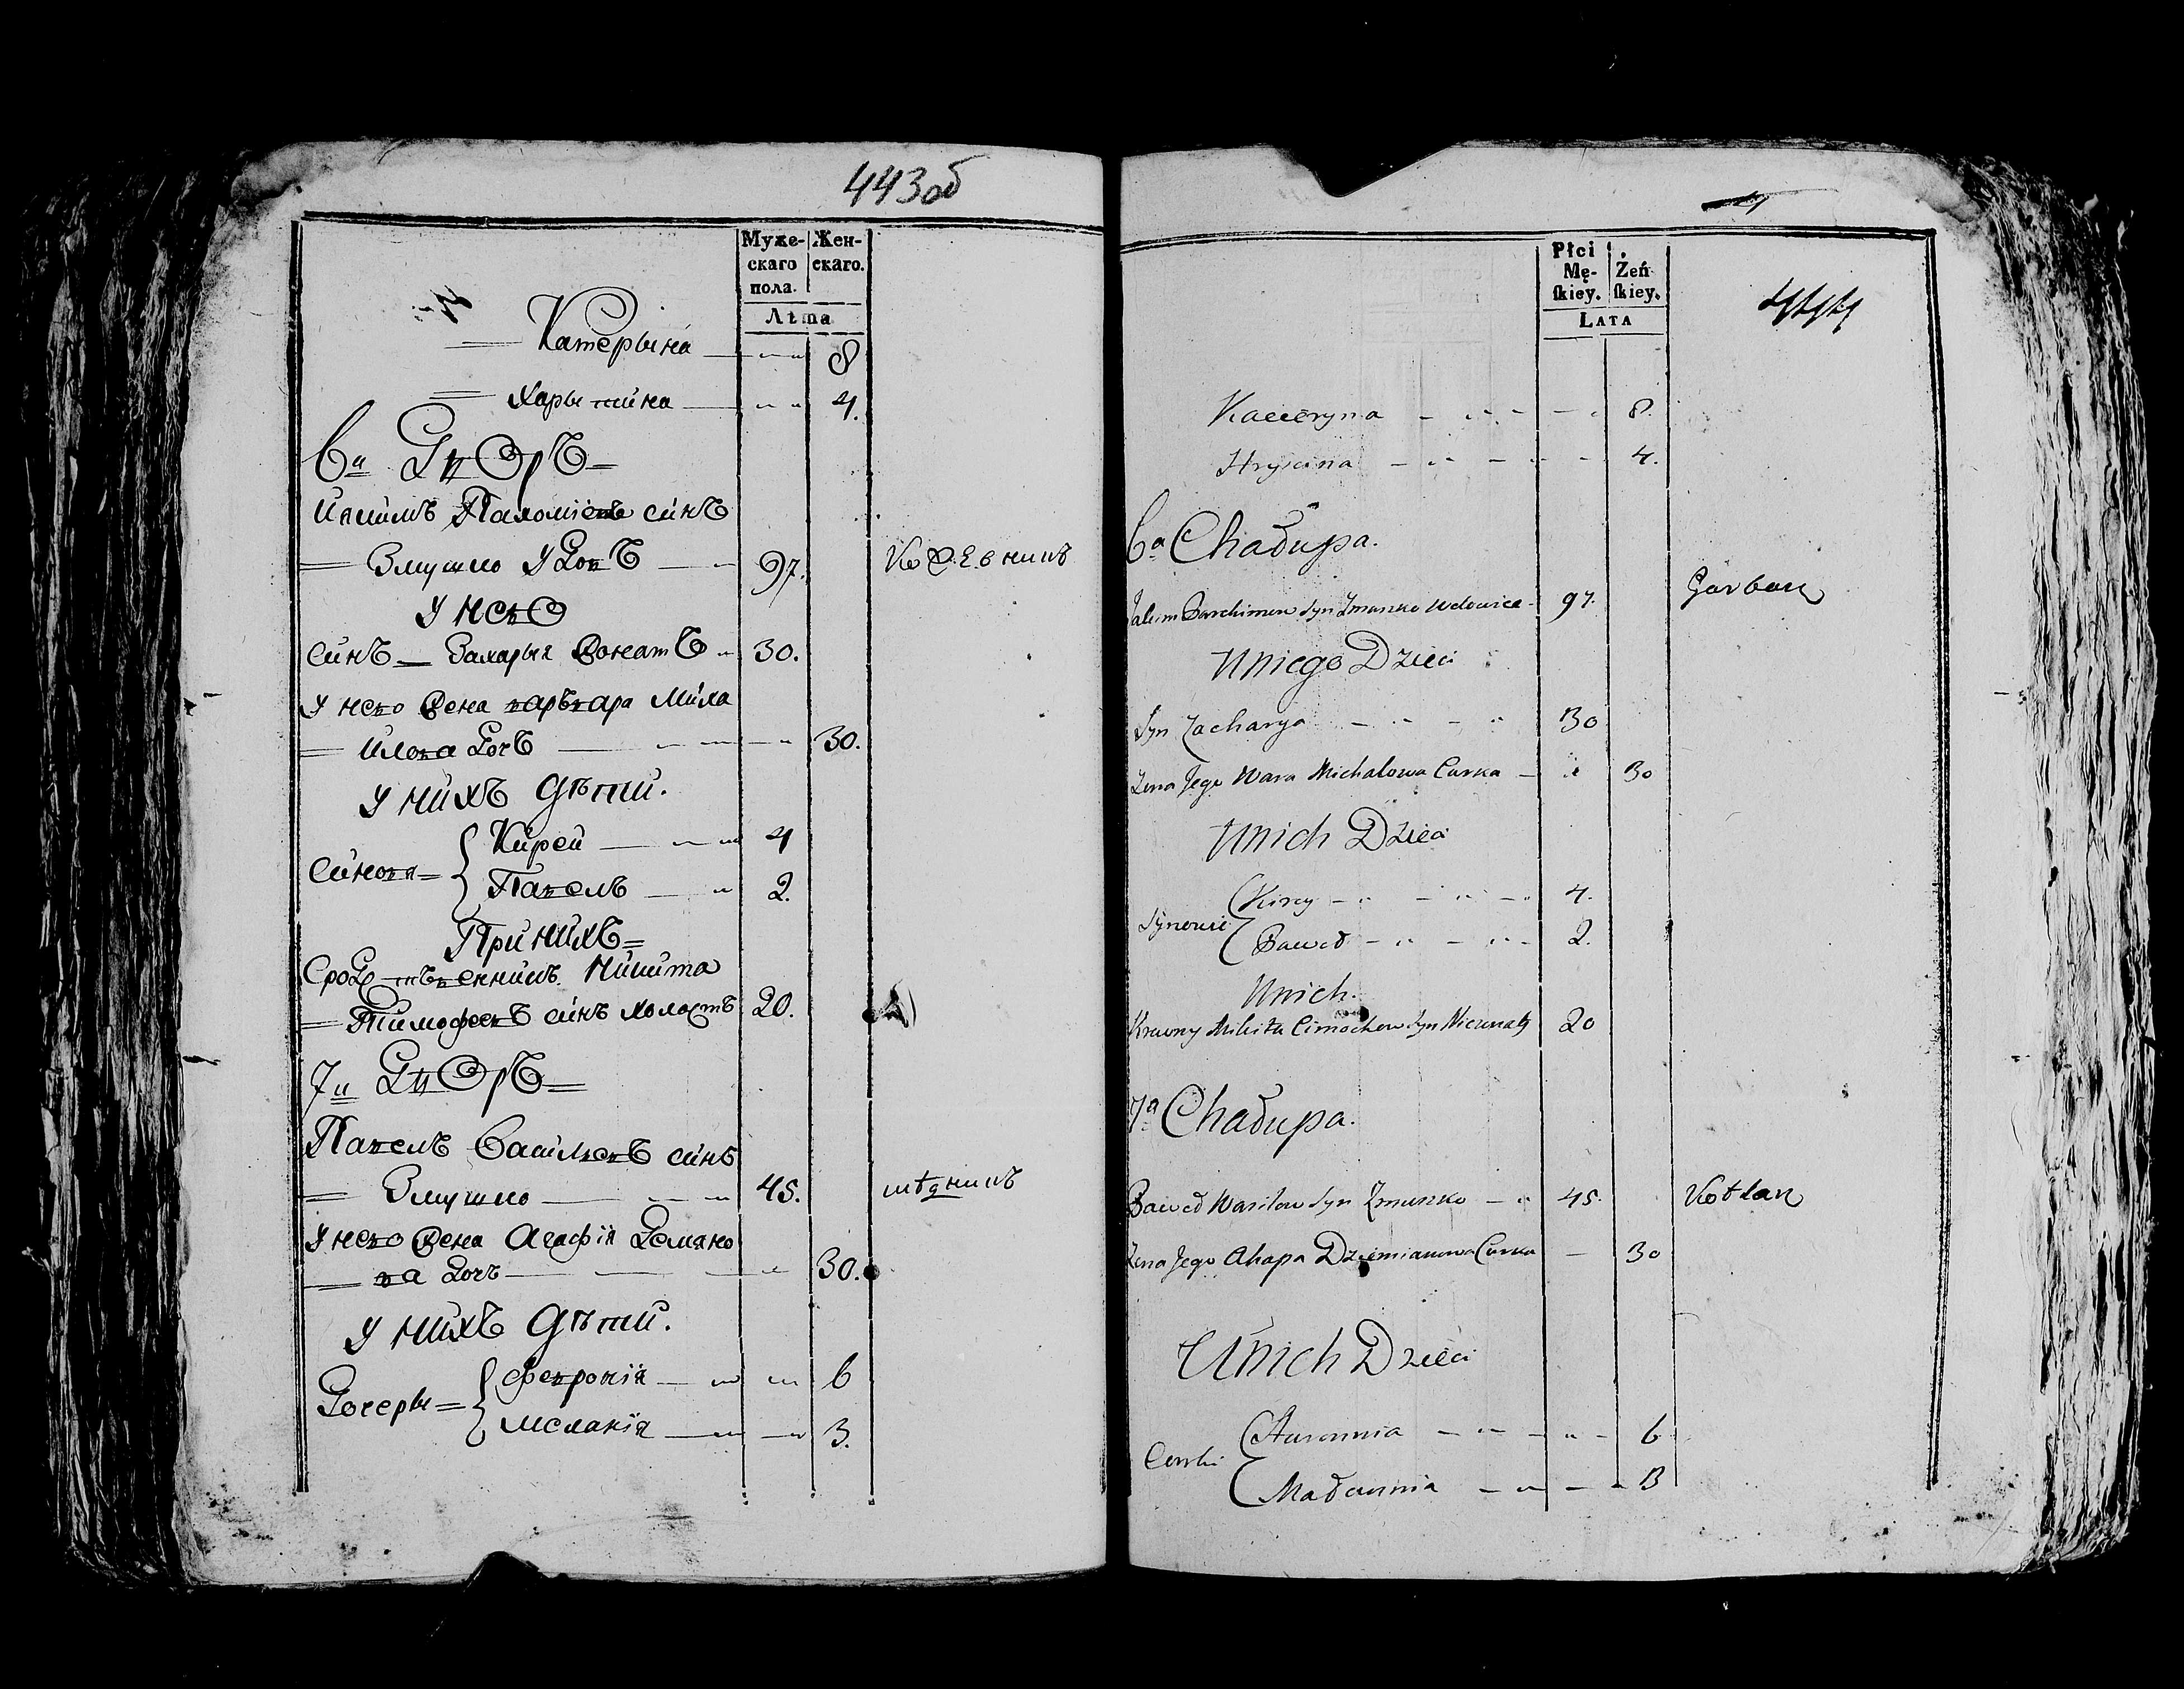 443об
Муже-
скаго
пола.
Жен-
скаго.
Лѣта
Катерына 8
Харытина 4.
6й Дворъ
Якимъ Пахомієвъ синъ
Змушко удовъ 97. Кожевникъ
У него
синъ Захарыя женатъ 30.
У него жена варъвара Миха
йлова дочъ 30.
У нихъ дѣти.
синовя Кирей 4
Павелъ 2.
При нихъ
Сродственникъ Никита
Тимофеевъ синъ холостъ 20.
7й Дворъ
Павелъ Васильевъ синъ
Змушко 45. мѣдникъ
У него жена Агафія Демяно
ва дочъ 30.
У нихъ дѣти.
Дочеры Февронія 6
Меланія 3.
Płci
Mę-
skiey.
Żeń
skiey.
Lata
444
Kaceryna 8.
Hryscina 4.
6a Chałupa.
Jakim Parchimow Syn Zmuszko Wdowiec 97. Garbarz
U niego Dzieci
Syn Zacharya 30
Zona Jego Wara Michałowa Curka 30
U nich Dzieci
Synowie Kirey 4.
Paweł 2.
U nich.
Krewny Mikita Cimochow Syn Niezonaty 20
7a Chałupa.
Paweł Wasilow Syn Zmuszko 45. Kotlarz
Zona Jego Ahapa Dziemianowa Curka 30
U nich Dzieci
Corki Auronnia 6
Małannia 3